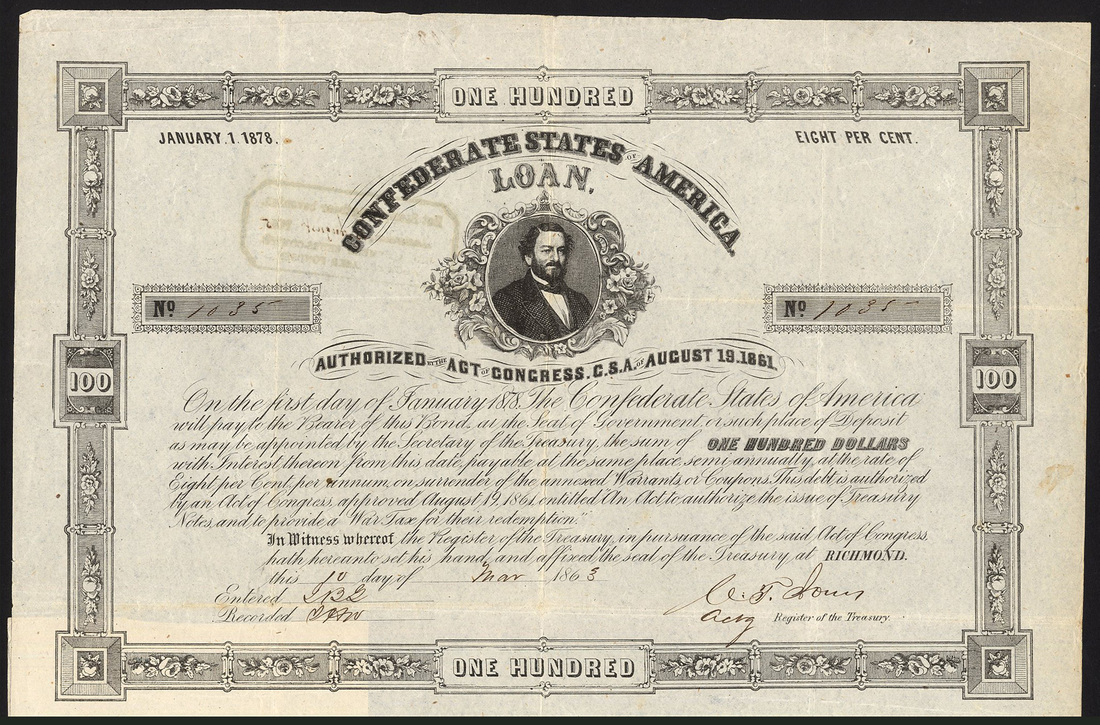 ONE HUNDRED
JANUARY.1.1878.
EIGHT PER CENT.
CONFEDERATE STATES OF AMERICA.
LOAN,
No 1035
No 1035
AUTHORIZED BY THE ACT OF CONGRESS. C.S.A. OF AUGUST 19.1861.
100
100
On the first day of January 1878, The Confederate States of America
will pay to the Bearer of this Bond, at the Seat of Government, or such place of Deposit
as may be appointed by the Secretary of the Treasury, the sum of ONE HUNDRED DOLLARS
with Interest thereon from this date, payable at the same place, semi-annually, at the rate of
Eight per Cent, per annum, on surrender of the annexed Warrants, or Coupons. This debt is authorized
by an Act of Congress, approved August 19, 1861, entitled An Act to authorize the issue of Treasury
Notes, and to provide a "War Tax for their redemption."
In Witness whereof, the Register of the Treasury, in pursuance of the said Act of Congress,
hath hereunto set his hand, and affixed the seal of the Treasury, at RICHMOND.
this 10 day of Mar 1863
Entered
Recorded
Actg Register of the Treasury.
ONE HUNDRED